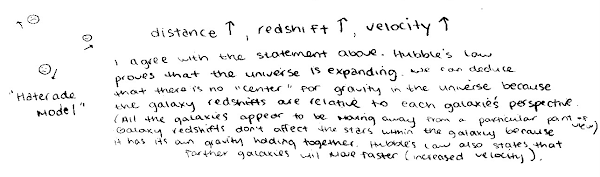 distance ↑, redshift ↑, velocity ↑
I agree with the statement above. Hubble's Law
proves that the universe is expanding. We can deduce
that there is no "center" for gravity in the universe because
the galaxy redshifts are relative to each galaxies perspective.
(All the galaxies appear to be moving away from a particular point of view)
Galaxy redshifts don't affect the stars within the galaxy because
it has its own gravity holding together. Hubble's Law also states that
farther galaxies will move faster (increased velocity).
"Haterade
Model"